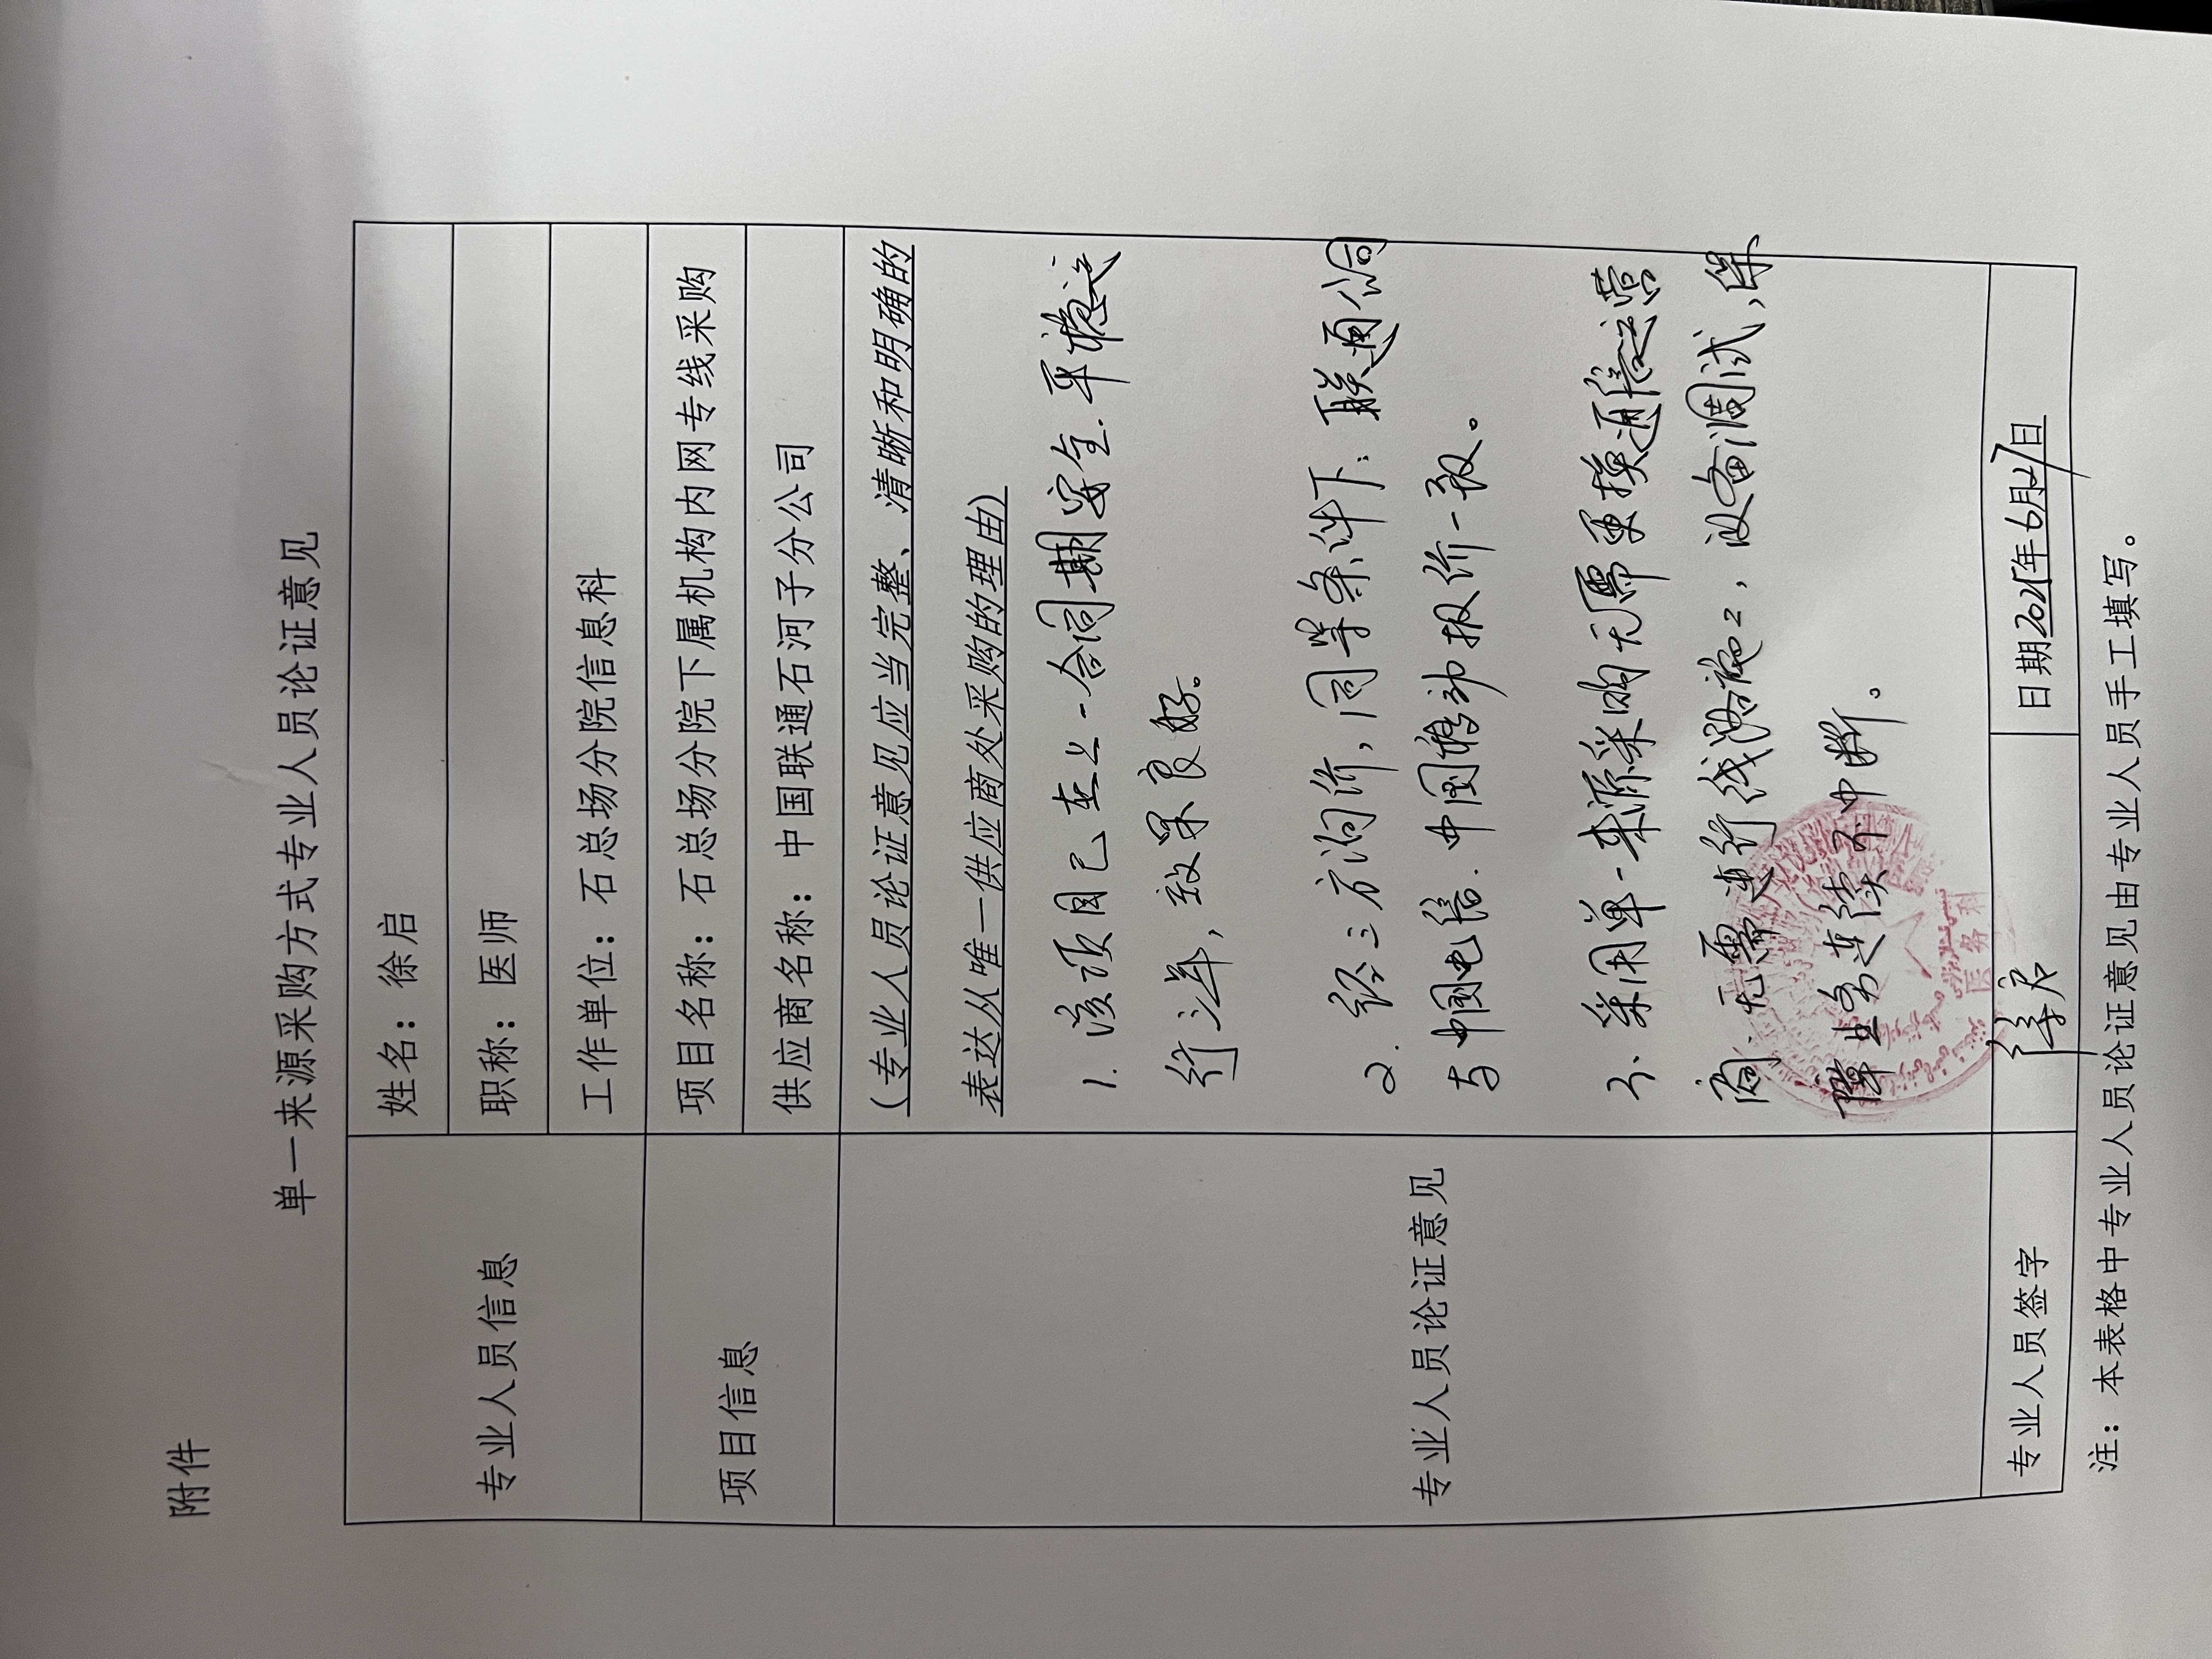 附件
单一来源采购方式专业人员论证意见
专业人员信息
姓名：徐启
职称：医师
工作单位：石总场分院信息科
项目信息
项目名称：石总场分院下属机构内网专线采购
供应商名称：中国联通石河子分公司
专业人员论证意见
（专业人员论证意见应当完整、清晰和明确的
表达从唯一供应商处采购的理由）
1. 该项目已在上一合同期安全.平稳运
行三年，效果良好。
2. 经三方询价，同等条件下：联通公司
与中国电信.中国移动报价一致。
3、采用单一来源采购无需更换通信运营
商.无需进行线路施工，设备调试、保
障业务连续不中断。
医务科
专业人员签字
日期2025年6月27日
注：本表格中专业人员论证意见由专业人员手工填写。